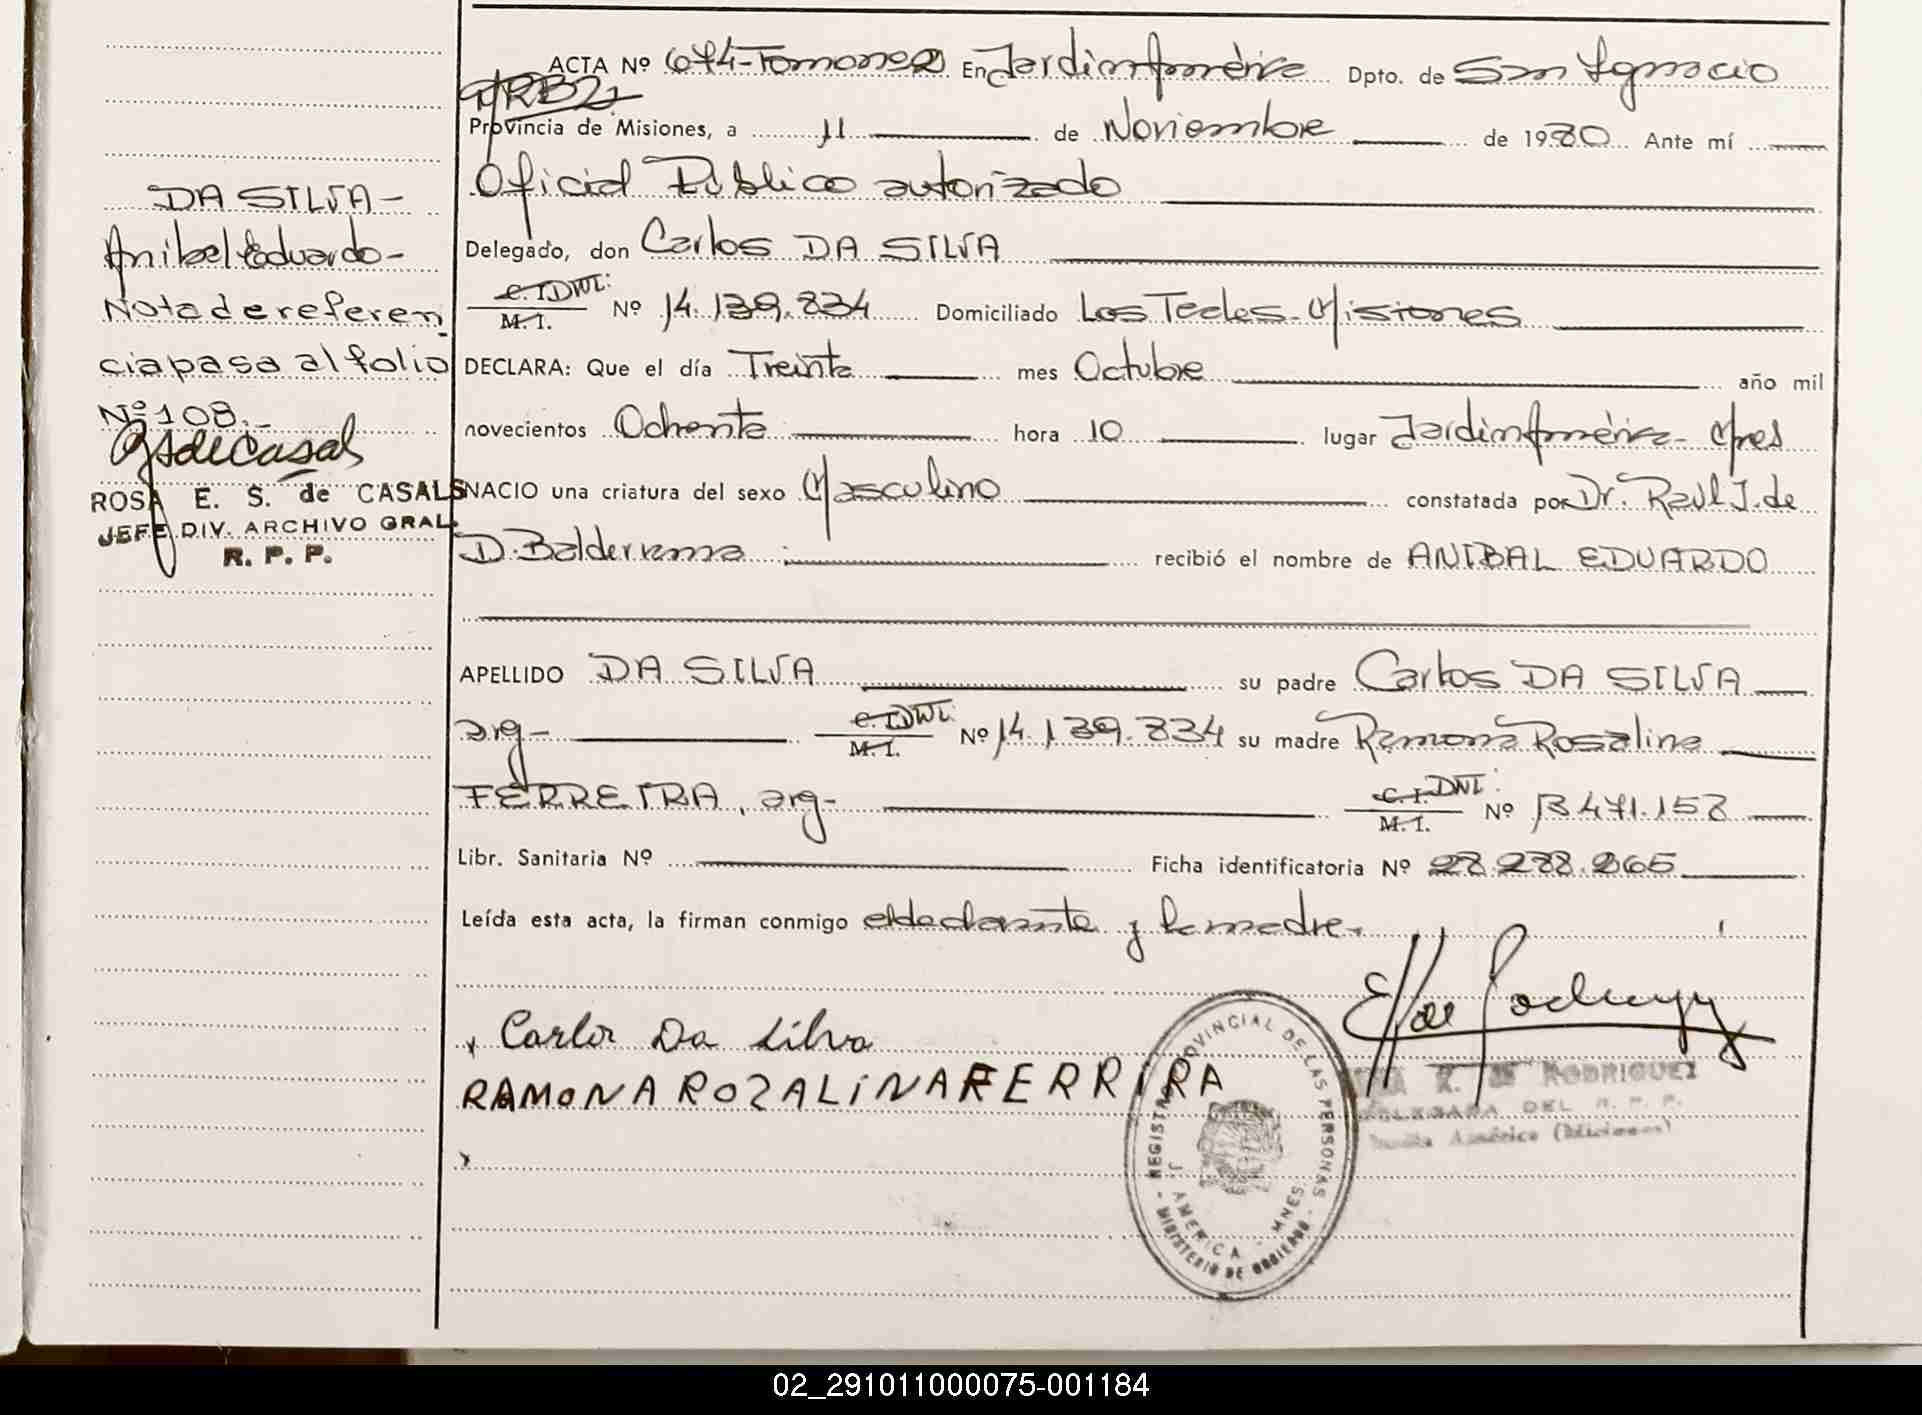 ACTA Nº 674-Tomo nº 2 En Jardin América Dpto. de San Ignacio
Provincia de Misiones, a 11 de Noviembre de 1980 Ante mí
Oficial Público autorizado
Delegado, don Carlos DA SILVA
C.I. DNI: M.I. Nº 14.139.834 Domiciliado Los Teales-Misiones
DECLARA: Que el día Treinta mes Octubre año mil
novecientos Ochenta hora 10 lugar Jardin América- Mnes
NACIO una criatura del sexo Masculino constatada por Dr. Raul J. de
D. Balderrama recibió el nombre de ANIBAL EDUARDO
APELLIDO DA SILVA su padre Carlos DA SILVA
arg- C.I. DNI: M.I. Nº 14.139.834 su madre Ramona Rosalina
FERREIRA, arg- C.I. DNI: M.I. Nº 13.471.158
Libr. Sanitaria Nº Ficha identificatoria Nº 28.288.265
Leída esta acta, la firman conmigo el declarante y la madre.
Carlos Da Silva
RAMONA ROZALINA FERRIRA
RODRIGUEZ
DEL R. P. P.
América (Misiones)
REGISTRO PROVINCIAL DE LAS PERSONAS
J. AMERICA - MNES.
MINISTERIO DE GOBIERNO
DA SILVA-
Anibal Eduardo-
Nota de referen
cia pasa al folio
Nº 108.-
ROSA E. S. de CASALS
JEFE DIV. ARCHIVO GRAL.
R. P. P.
02_291011000075-001184